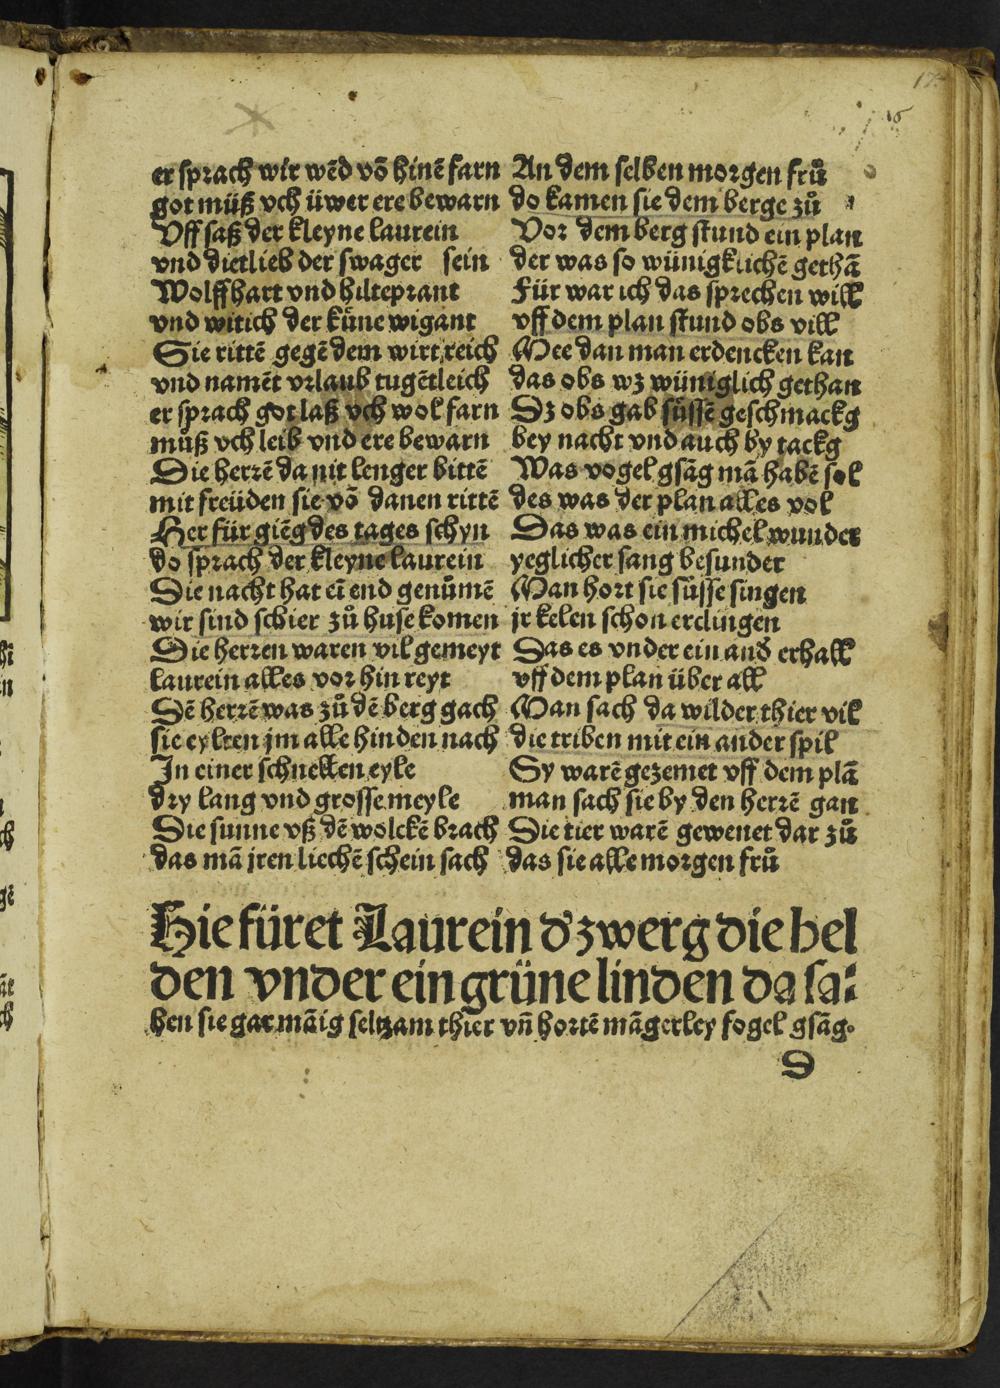 17
16
er sprach wir wēd vō hinē farn
got müß vch üwer ere bewarn
Vff saß der kleyne laurein
vnd dietlieb der swager sein
Wolffhart vnd hilteprant
vnd witich der kuͤne wigant
Sie rittē gegē dem wirt reich
vnd namēt vrlaub tugētleich
er sprach got laß vch wol farn
müß vch leib vnd ere bewarn
Die herrē da nit lenger bittē
mit freüden sie vō danen rittē
Her für giēg des tages schyn
do sprach der kleyne laurein
Die nacht hat eī end genuͦmē
wir sind schier zuͦ huse komen
Die herren waren vil gemeyt
laurein alles vor hin reyt
Dē herrē was zuͦ dē berg gach
sie eylten jm alle hinden nach
In einer schnellen eyle
dry lang vnd grosse meyle
Die sunne vß dē wolckē brach
das mā jren liechē schein sach
An dem selben morgen fruͦ
do kamen sie dem berge zuͦ
Vor dem berg stund ein plan
der was so wünigklichē gethā
Für war ich das sprechen will
vff dem plan stund obs vill
Mee dan man erdencken kan
das obs wz wüniglich gethan
Dz obs gab suͤssē geschmackg
bey nacht vnd auch by tackg
Was vogel gsāg mā habē sol
des was der plan alles vol
Das was ein michel wunder
yeglicher sang besunder
Man hort sie süsse singen
jr kelen schon erclingen
Das es vnder ein and̛ erhall
vff dem plan über all
Man sach da wilder thier vil
die triben mit ein ander spil
Sy warē gezemet vff dem plā
man sach sie by den herrē gan
Die tier warē gewenet dar zuͦ
das sie alle morgen fruͦ
Hie füret Laurein d̛ zwerg die hel
den vnder ein grüne linden da sa⸗
hen sie gar māig seltzam thier vn̄ hortē māgerley fogel gsāg.
D